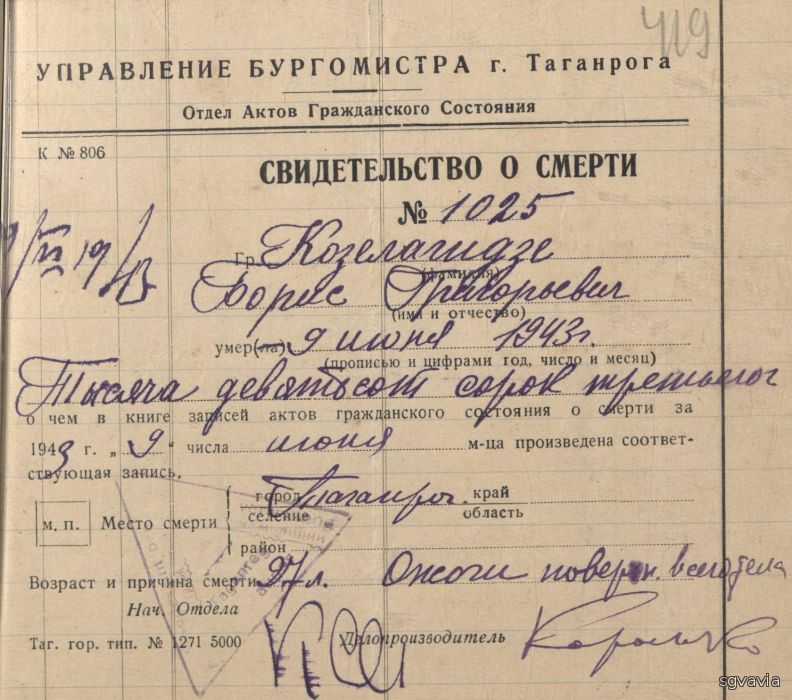 419
УПРАВЛЕНИЕ БУРГОМИСТРА г. Таганрога
Отдел Актов Гражданского Состояния
К № 806
СВИДЕТЕЛЬСТВО О СМЕРТИ
№ 1025
Гр. Козелагидзе
(фамилия)
Борис Григорьевич
(ими и отчество)
умер(ла) 9 июня 1943г.
(прописью и цифрами год, число и месяц)
Тысяча девятьсот сорок третьего
о чем в книге записей актов гражданского состояния о смерти за
1943 г. „ 9 " числа июня м-ца произведена соответ-
ствующая запись.
м. п. Место смерти город Таганрог край
селение область
район
Возраст и причина смерти 27 л. Ожоги поверхн. всего тела
Нач. Отдела
Таг. гор. тип. № 1271 5000 Делопроизводитель
sgvavia